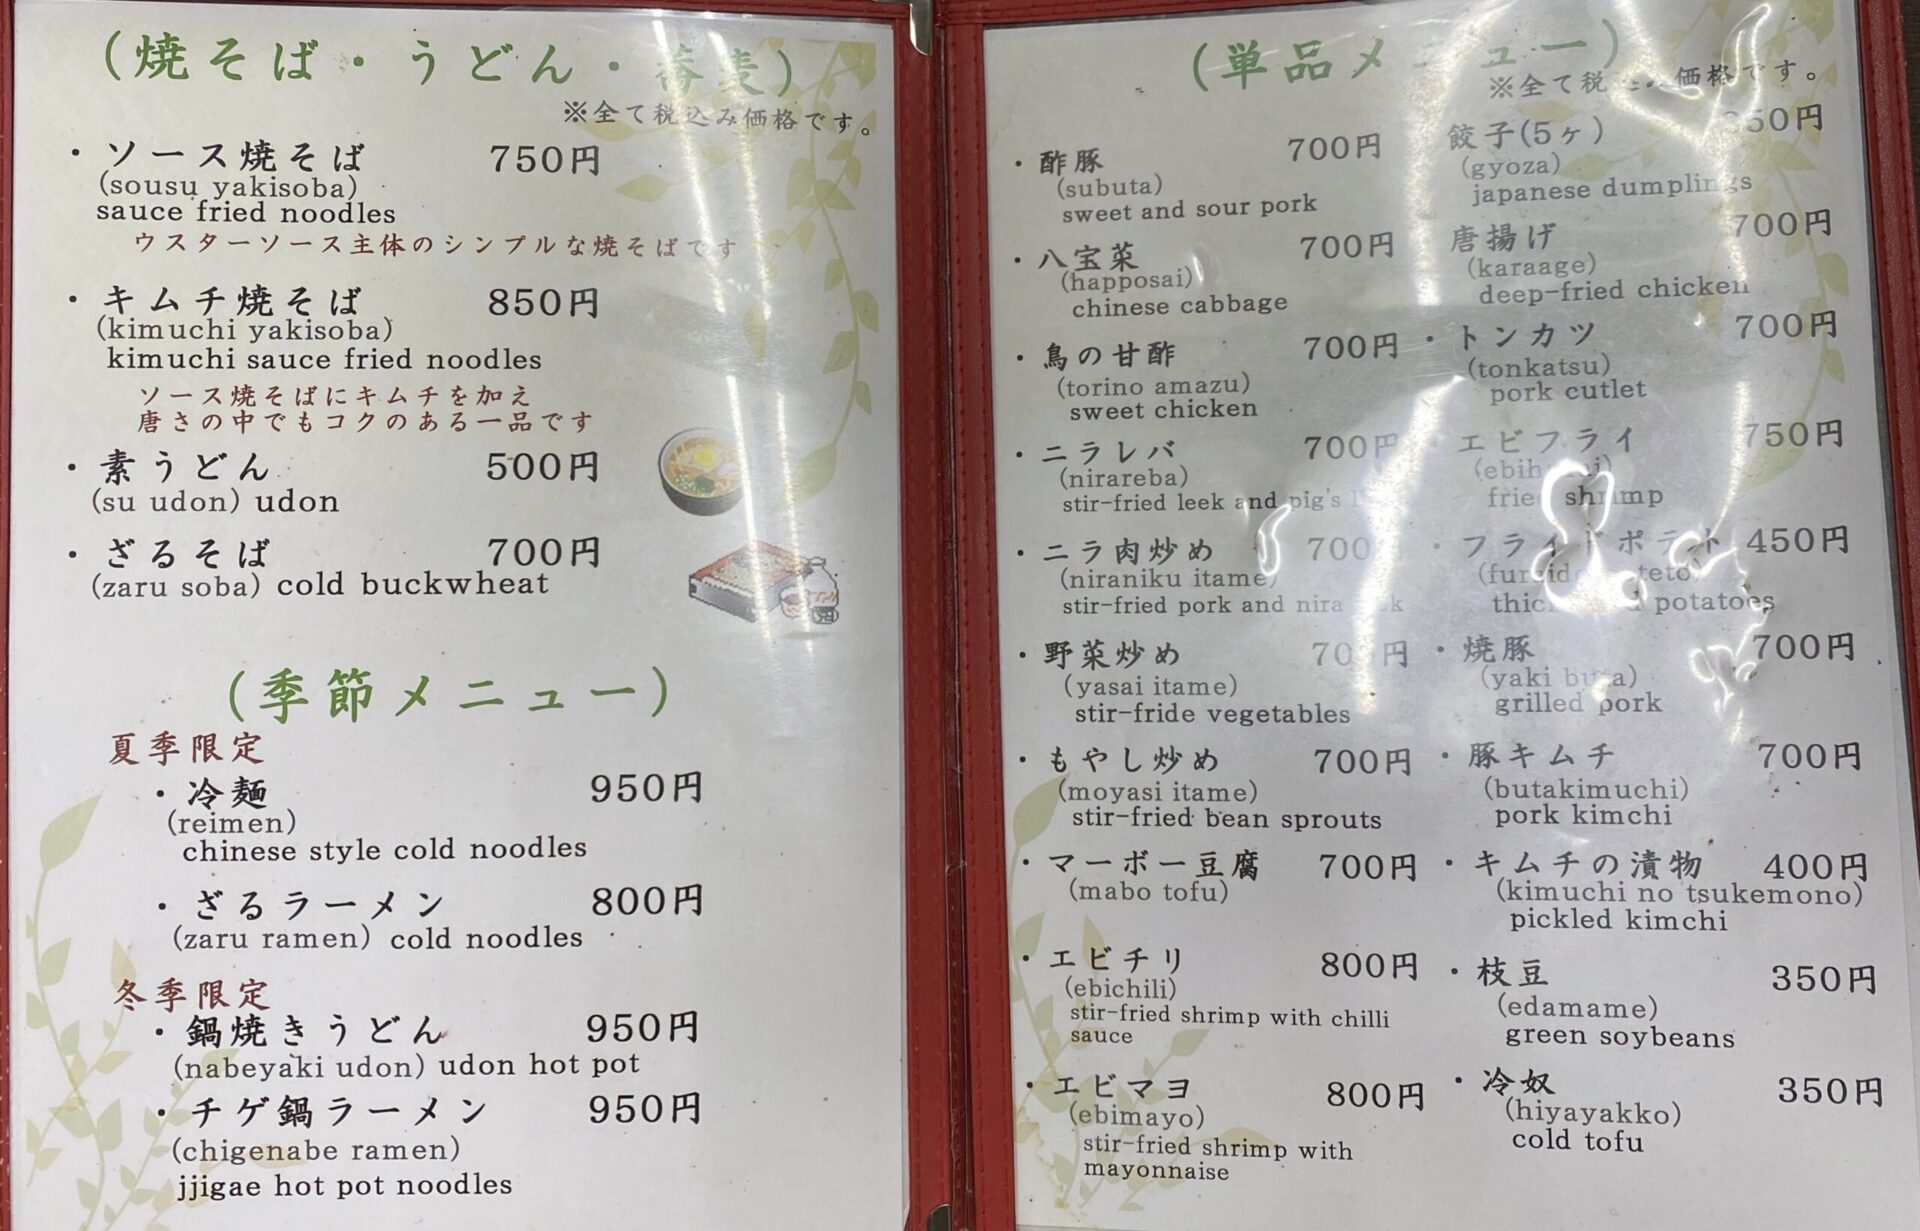 (焼そば・うどん・蕎麦)
※全て税込み価格です。
・ソース焼そば 750円
(sousu yakisoba)
sauce fried noodles
ウスターソース主体のシンプルな焼そばです
・キムチ焼そば 850円
(kimuchi yakisoba)
kimuchi sauce fried noodles
ソース焼そばにキムチを加え
唐さの中でもコクのある一品です
・素うどん 500円
(su udon) udon
・ざるそば 700円
(zaru soba) cold buckwheat
(季節メニュー)
夏季限定
・冷麺 950円
(reimen)
chinese style cold noodles
・ざるラーメン 800円
(zaru ramen) cold noodles
冬季限定
・鍋焼きうどん 950円
(nabeyaki udon) udon hot pot
・チゲ鍋ラーメン 950円
(chigenabe ramen)
jjigae hot pot noodles
(単品メニュー)
※全て税込み価格です。
・酢豚 700円
(subuta)
sweet and sour pork
・八宝菜 700円
(happosai)
chinese cabbage
・鳥の甘酢 700円
(torino amazu)
sweet chicken
・ニラレバ 700円
(nirareba)
stir-fried leek and pig's
・ニラ肉炒め 700
(niraniku itame)
stir-fried pork and nira
・野菜炒め 700円
(yasai itame)
stir-fride vegetables
・もやし炒め 700円
(moyasi itame)
stir-fried bean sprouts
・マーボー豆腐 700円
(mabo tofu)
・エビチリ 800円
(ebichili)
stir-fried shrimp with chilli
sauce
・エビマヨ 800円
(ebimayo)
stir-fried shrimp with
mayonnaise
餃子(5ヶ)
(gyoza)
japanese dumplings
唐揚げ 700円
(karaage)
deep-fried chicken
・トンカツ 700円
(tonkatsu)
pork cutlet
・エビフライ 750円
fried shrimp
・フライドポテト 450円
potatoes
・焼豚 700円
(yaki buta)
grilled pork
・豚キムチ 700円
(butakimuchi)
pork kimchi
・キムチの漬物 400円
(kimuchi no tsukemono)
pickled kimchi
・枝豆 350円
(edamame)
green soybeans
・冷奴 350円
(hiyayakko)
cold tofu